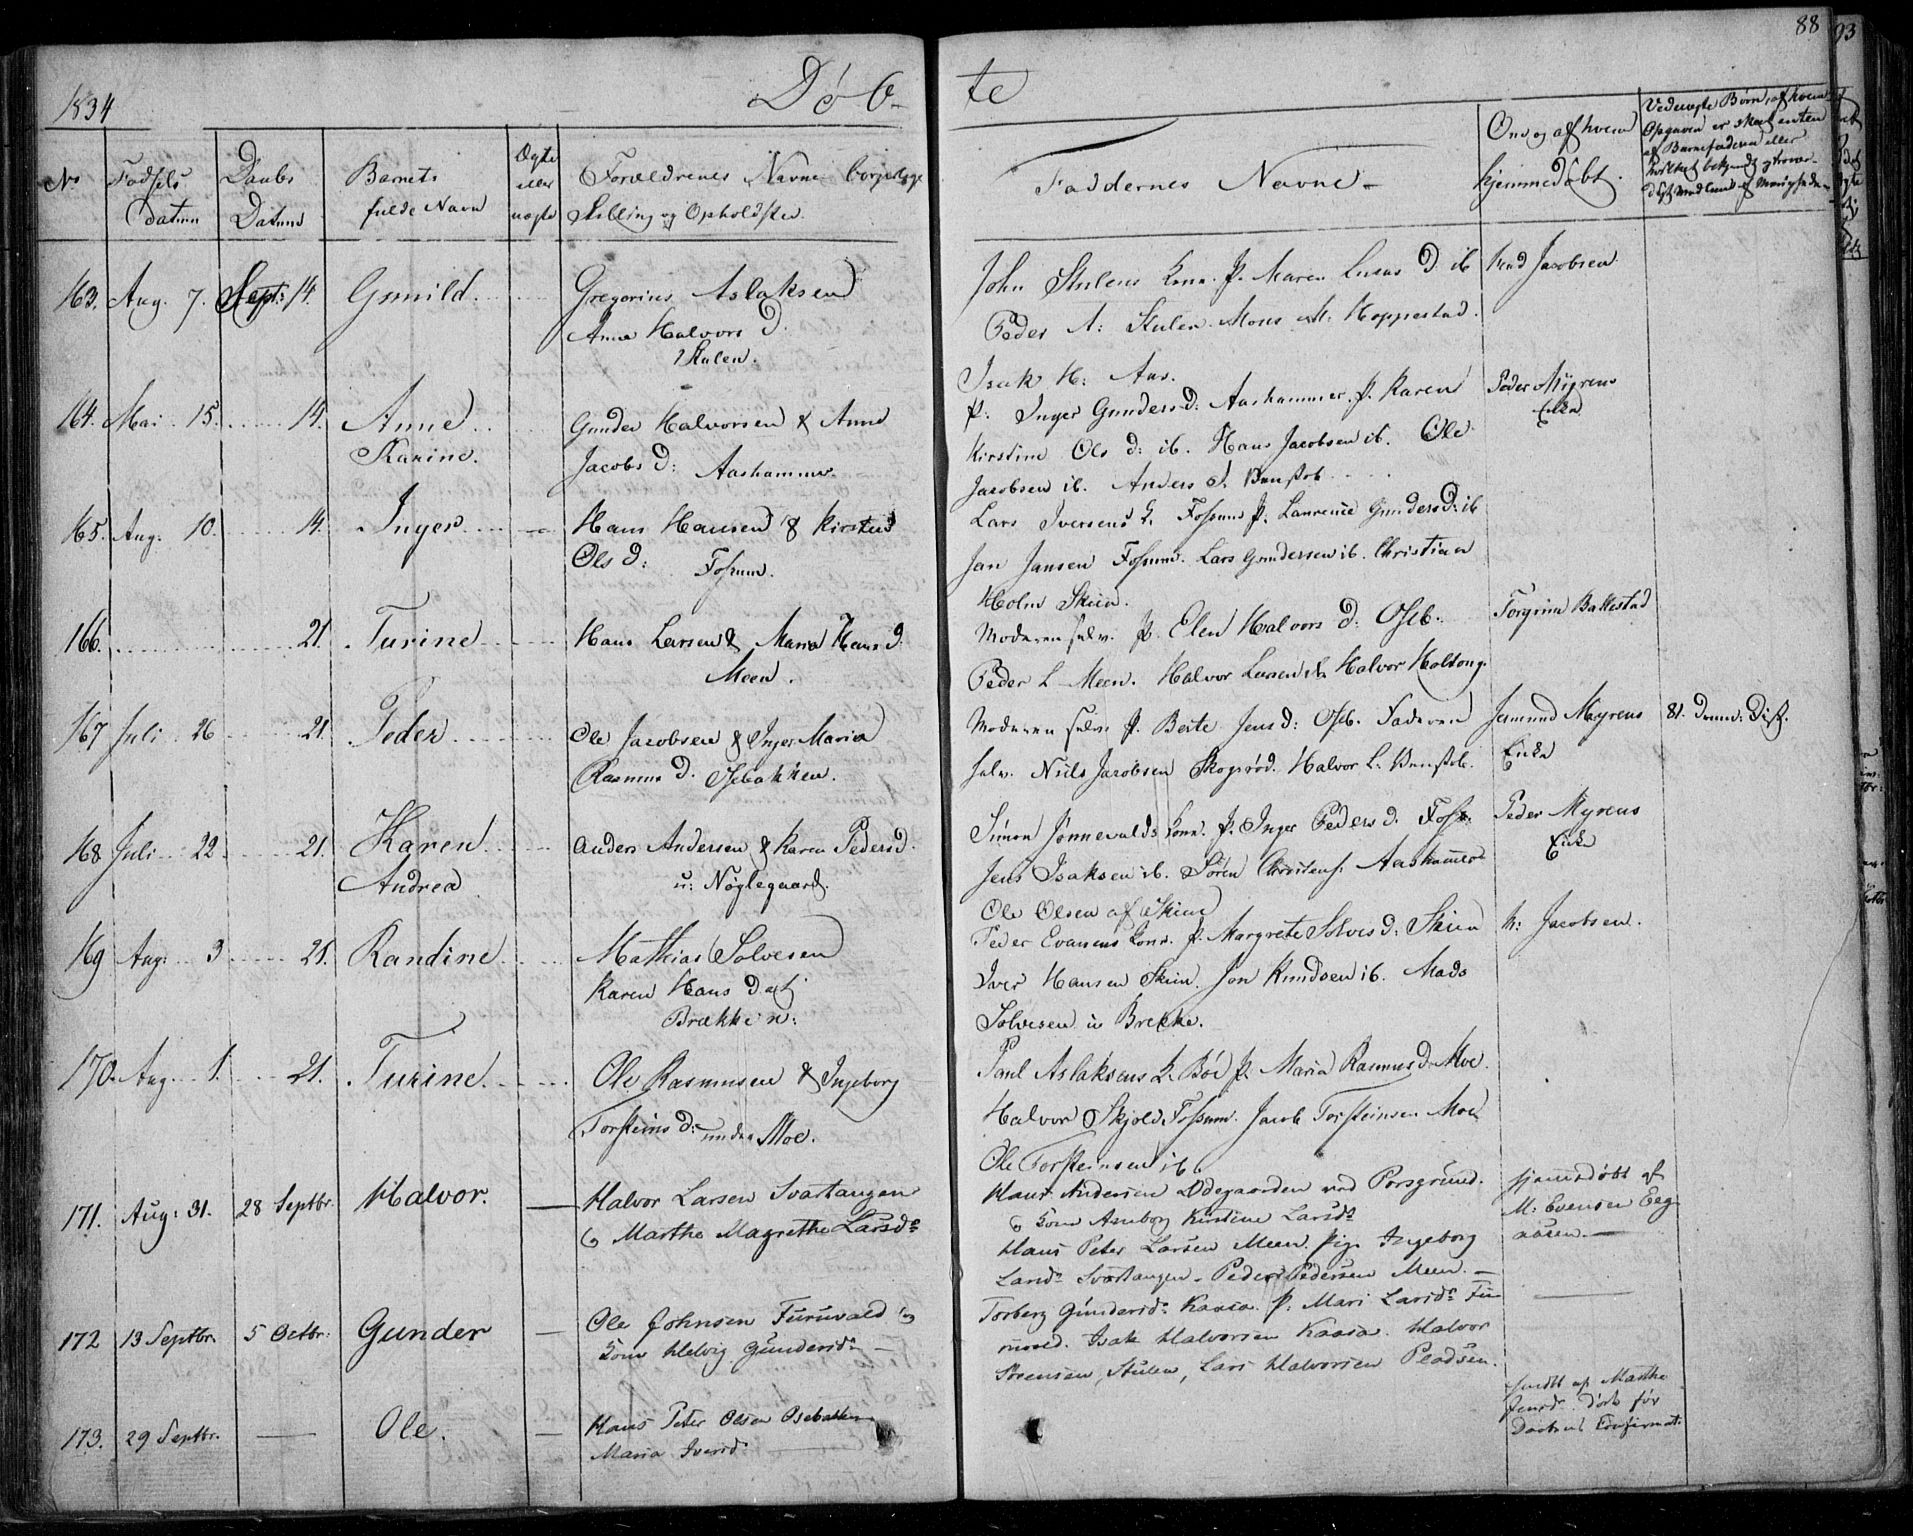 88
1834
Døb-
te
No
Fødsels
Datum
Daabs
Datum
Barnets
fulde Navn
Ægte
eller
uægte
Forældrenes Navne borgerlige
Stilling og Opholdsted.
Faddernes Navne-
Om og af hvem
hjemmedøbt.
Ved uægte Børn, af hvem
Opgaven er skeet enten
af Barnefaderen eller
163. Aug. 7. Sept: 14. Gunild.
Gregorius Aslaksen
Anne Halvors D:
Stulen.
John Stulens Kone. P. Maren D. ib
Peder A: Stulen. Mons M: Hoppestad.
Knud Jacobsen
164. Mai 15. 14. Anne
Karine.
Gunder Halvorsen & Anne
Jacobs D: Aashammer.
Isak H: Aas.
P: Inger Gundersd: Aashammer. P. Karen
Kirstine Ols d: ib. Hans Jacobsen ib. Ole
Jacobsen ib. Anders
Peder Myrens
Enke
165. Aug. 10. 14. Inger
Hans Hansen & Kirsten
Ols D: Fossum.
Lars Iversens K. Fossum P: Laurence Gundersd: ib
Jan Jansen Fossum. Lars Gundersen ib. Christian
Holm Skien.
166. 21. Turine
Hans Larsen & Maria Hans d.
Meen.
Moderen selv. P. Elen Halvors D: Oseb.
Peder L Meen. Halvor Larsen ib Halvor Holtung.
Torgrim Bakkestad
167 Juli 26 21 Peder
Ole Jacobsen & Inger Maria
Rasmus D. Osebakken.
Moderen selv. P. Berte Jens d: Oseb. Faderen
selv. Niels Jacobsen Skogsrød. Halvor L.
Jermund Myrens
Enke
81.
168 Juli 22 21. Karen
Andrea
Anders Andersen & Karen Pedersd.
u: Nøglegaard.
Simon Jønnevalds Kone. P. Inger Peders d.
Jens Isaksen ib. Søren Christens. Aashammer
Ole Olsen af Skien
Peder Myrens
Enke
169 Aug: 3 21. Randine
Mathias Solvesen
Karen Hans Dat
Brækken:
Peder Evansens Kone. P. Margrete Solves d: Skien
Iver Hansen Skien. Jon Knudsen ib. Mads
Solvesen u Brekke.
K: Jacobsen.
170. Aug. 1. 21. Turine.
Ole Rasmussen & Ingeborg
Torsteins d: under Moe.
Paul Aslaksens K. Böe P. Maria Rasmus D. Moe.
Halvor Skjold. Fossum. Jacob Torsteinsen Moe
Ole Torsteinsen ib.
171. Aug: 31. 28 Septbr. Halvor.
Halvor Larsen Svartangen
og Marthe Magrethe Larsdr
Hans Andersen Ødegaarden ved Porsgrund.
og Kone Anneborg Kirstine Larsdr
Hans Peter Larsen Meen. Pige Ingeborg
Larsdr Svartangen. Peder Pedersen Meen.
hjemmedøbt af
M: Evensen Eeg
aasen.
172 13 Septbr. 5 Octbr: Gunder
Ole Johnsen Furuvald og
Kone Helvig Gundersdr
Torberg Gundersdr Kaasa. P. Mari Larsdr Fu-
ruvald. Isak Halvorsen Kaasa. Halvor
Sørensen, Stulen, Lars Halvorsen Pladsen.
173. 29 Septbr. Ole.
Hans Peter Olsen Osebakken
Maria Iversd:
af Marthe
død før
Daabens Confirmat: